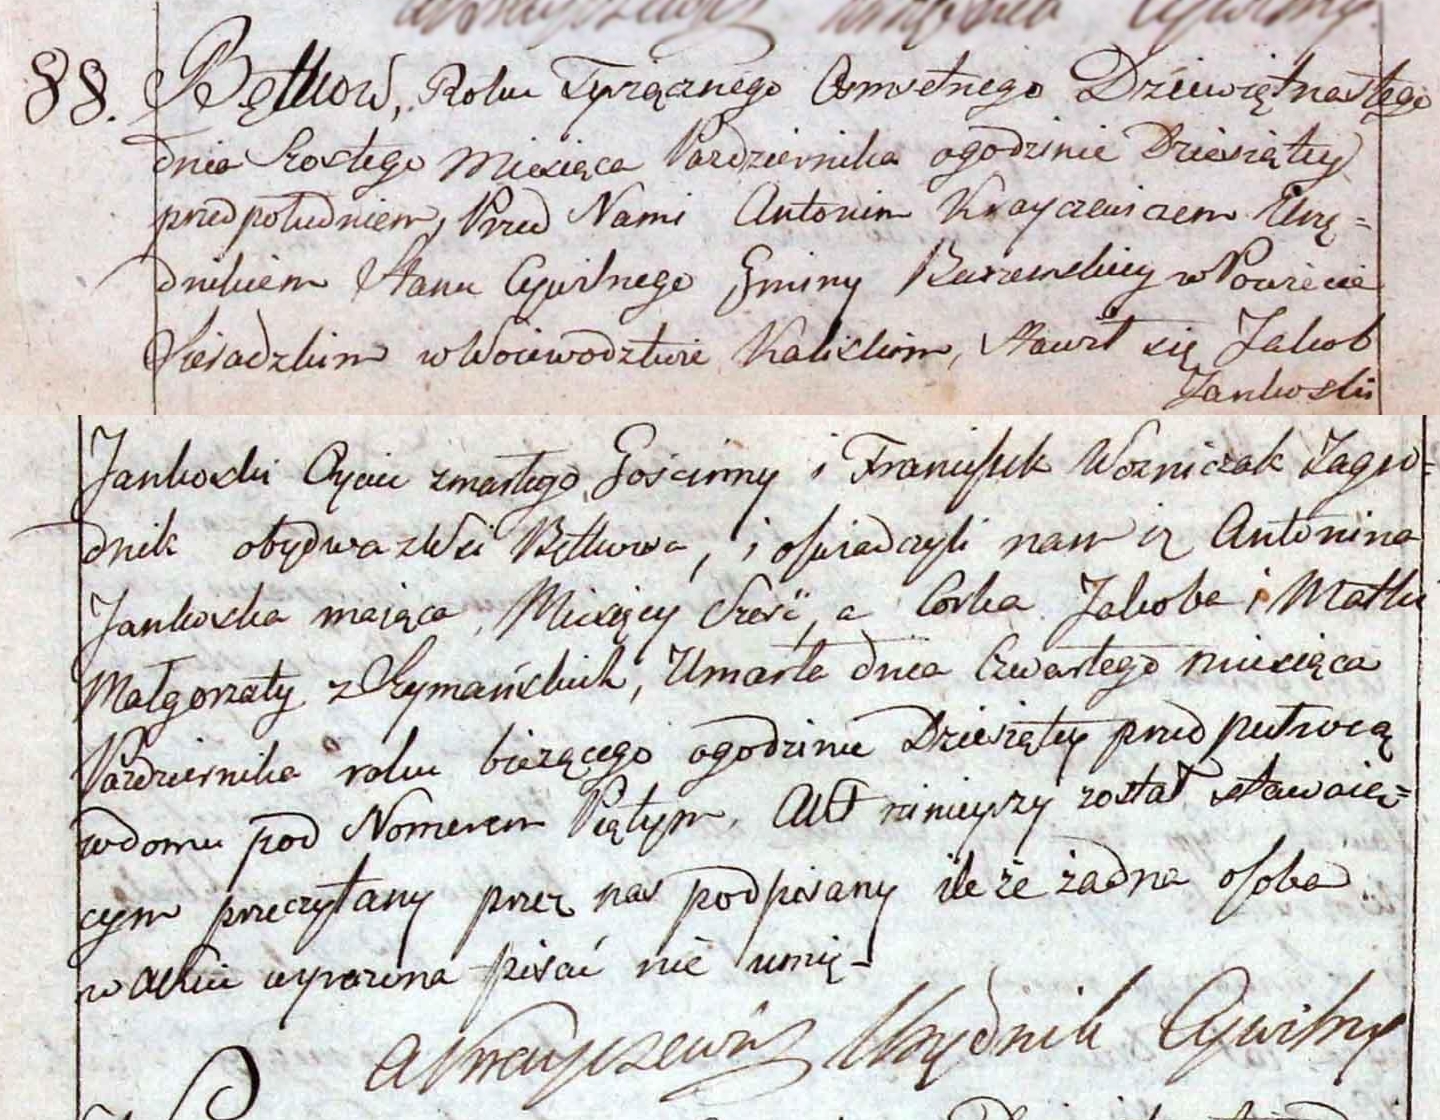 88. Bętkow, Roku Tysiącznego Osmsetnego Dziewiętnastego
dnia Szostego Miesiąca Pazdziernika ogodzinie Dziesiątey
przedpołudniem, Przed Nami Antonim Krayczewiczem Urzę=
dnikiem Stanu Cywilnego Gminy w Powiecie
Sieradzkim w Woiewodztwie Kaliskim, stawił się Jakob
Jankoski
Jankoski Oyciec zmarłego, Gościnny i Franciszek Wozniczak Zagro=
dnik obydwa z Wsi Bętkowa, i oświadczyli nam iz Antonina
Jankoska maiąca Miesięcy Sześć, a Corka Jakoba i Matki
Małgorzaty z Szymańskich, Umarła dnia Czwartego miesiąca
Pazdziernika roku bieżącego ogodzinie Dziesiątey przed putnocą
wdomu pod Nomerem Piątym. Akt ninieyszy został stawaią=
cym przeczytany przez nas podpisany ile że żadna osoba
w Akcie wyrazona pisać nie umię
AKraychzewicz Urzędnik Cywilny